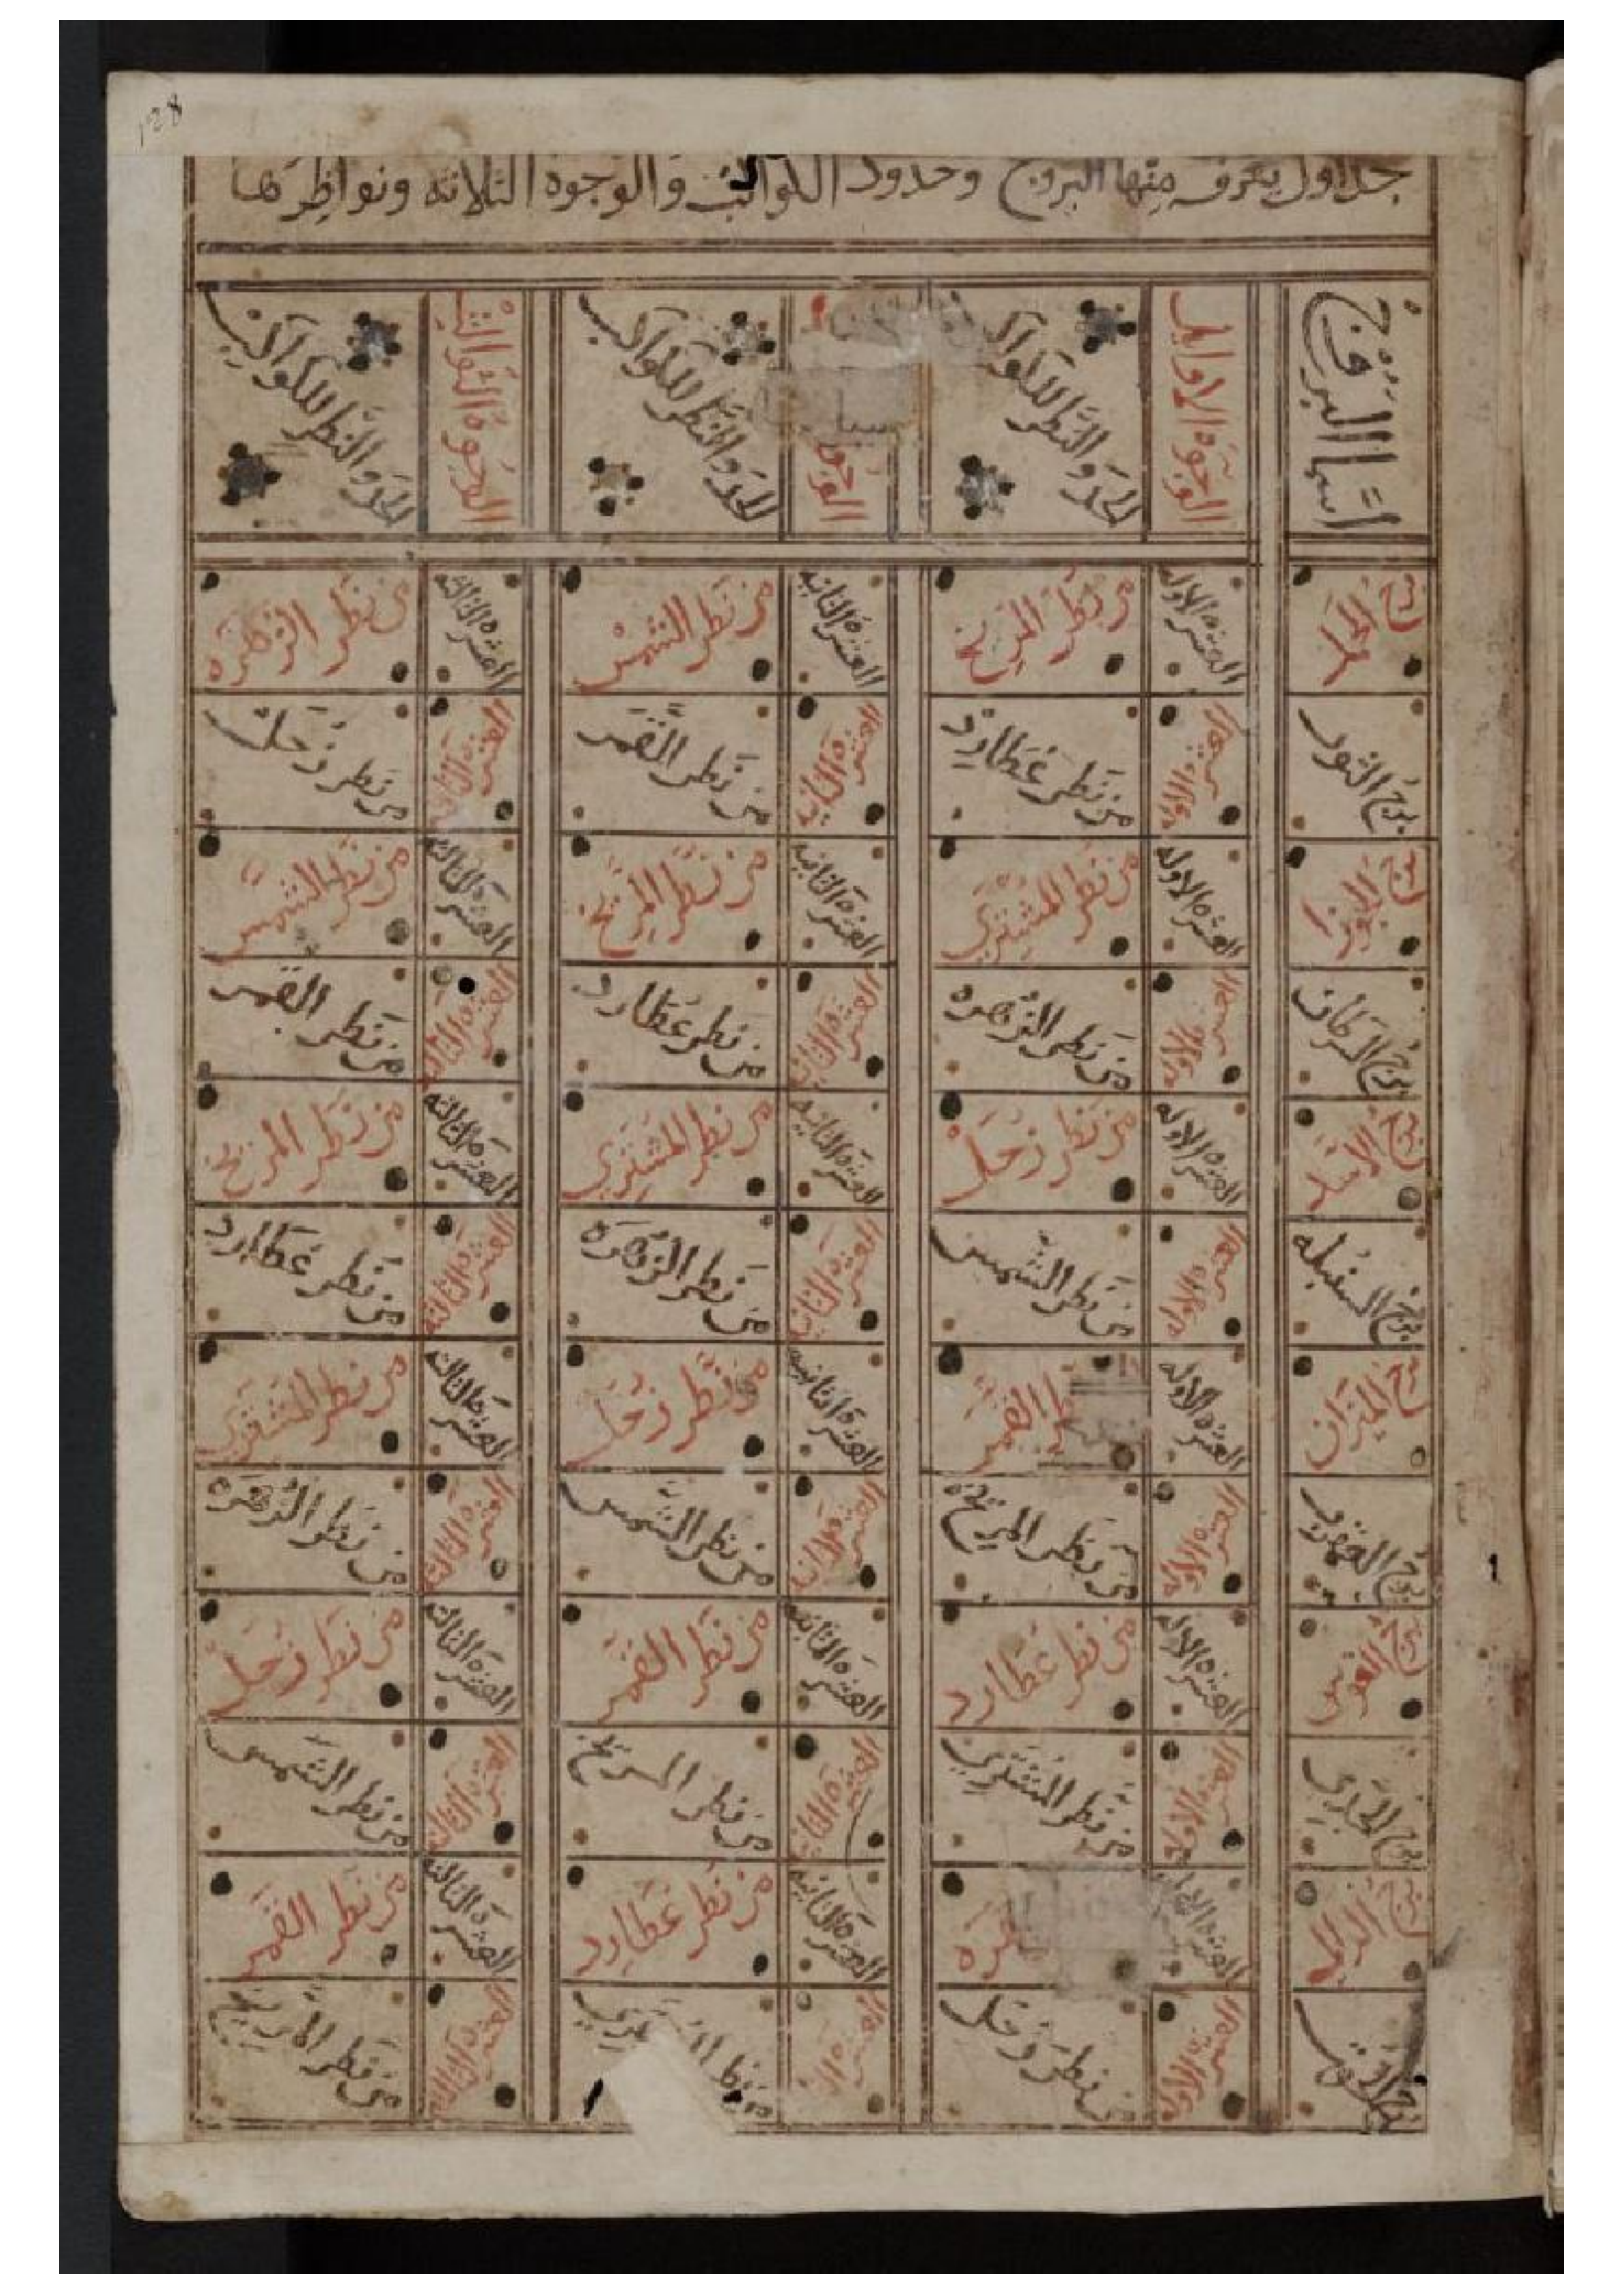 128
جداول يعرف منها البروج وحدود الكواكب والوجوه الثلاثه ونواظرها
اسما البروج الوجوه الاوايل الحد والنظر للكواكب الوجوه الحد والنظر للكواكب الوجوه الثوالث الحد والنظر للكواكب
برج الحمل العشره الاوله من نظر المريخ العشره الثانيه من نظر الشمس العشره الثالثه من نظر الزهره
برج الثور العشره الاوله من نظر عطارد العشره الثانيه من نظر القمر العشره الثالثه من نظر زحل
برج الجوزا العشره الاوله من نظر المشتري العشره الثانيه من نظر المريخ العشره الثالثه من نظر الشمس
برج السرطان العشره الاوله من نظر الزهره العشره الثانيه من نظر عطارد العشره الثالثه من نظر القمر
برج الاسد العشره الاوله من نظر زحل العشره الثانيه من نظر المشتري العشره الثالثه من نظر المريخ
برج السنبله العشره الاوله من نظر الشمس العشره الثانيه من نظر الزهره العشره الثالثه من نظر عطارد
برج الميزان العشره الاوله القمر العشره الثانيه من نظر زحل العشره الثالثه من نظر المشتري
برج العقرب العشره الاوله من نظر المريخ العشره الثانيه من نظر الشمس العشره الثالثه من نظر الزهره
برج القوس العشره الاوله من نظر عطارد العشره الثانيه من نظر القمر العشره الثالثه من نظر زحل
برج الجدي العشره الاوله من نظر المشتري العشره الثانيه من نظر المريخ العشره الثالثه من نظر الشمس
برج الدالي العشره الاوله العشره الثانيه من نظر عطارد العشره الثالثه من نظر القمر
برج الحوت العشره الاوله من نظر زحل العشره من نظر المشتري العشره الثالثه من نظر المريخ